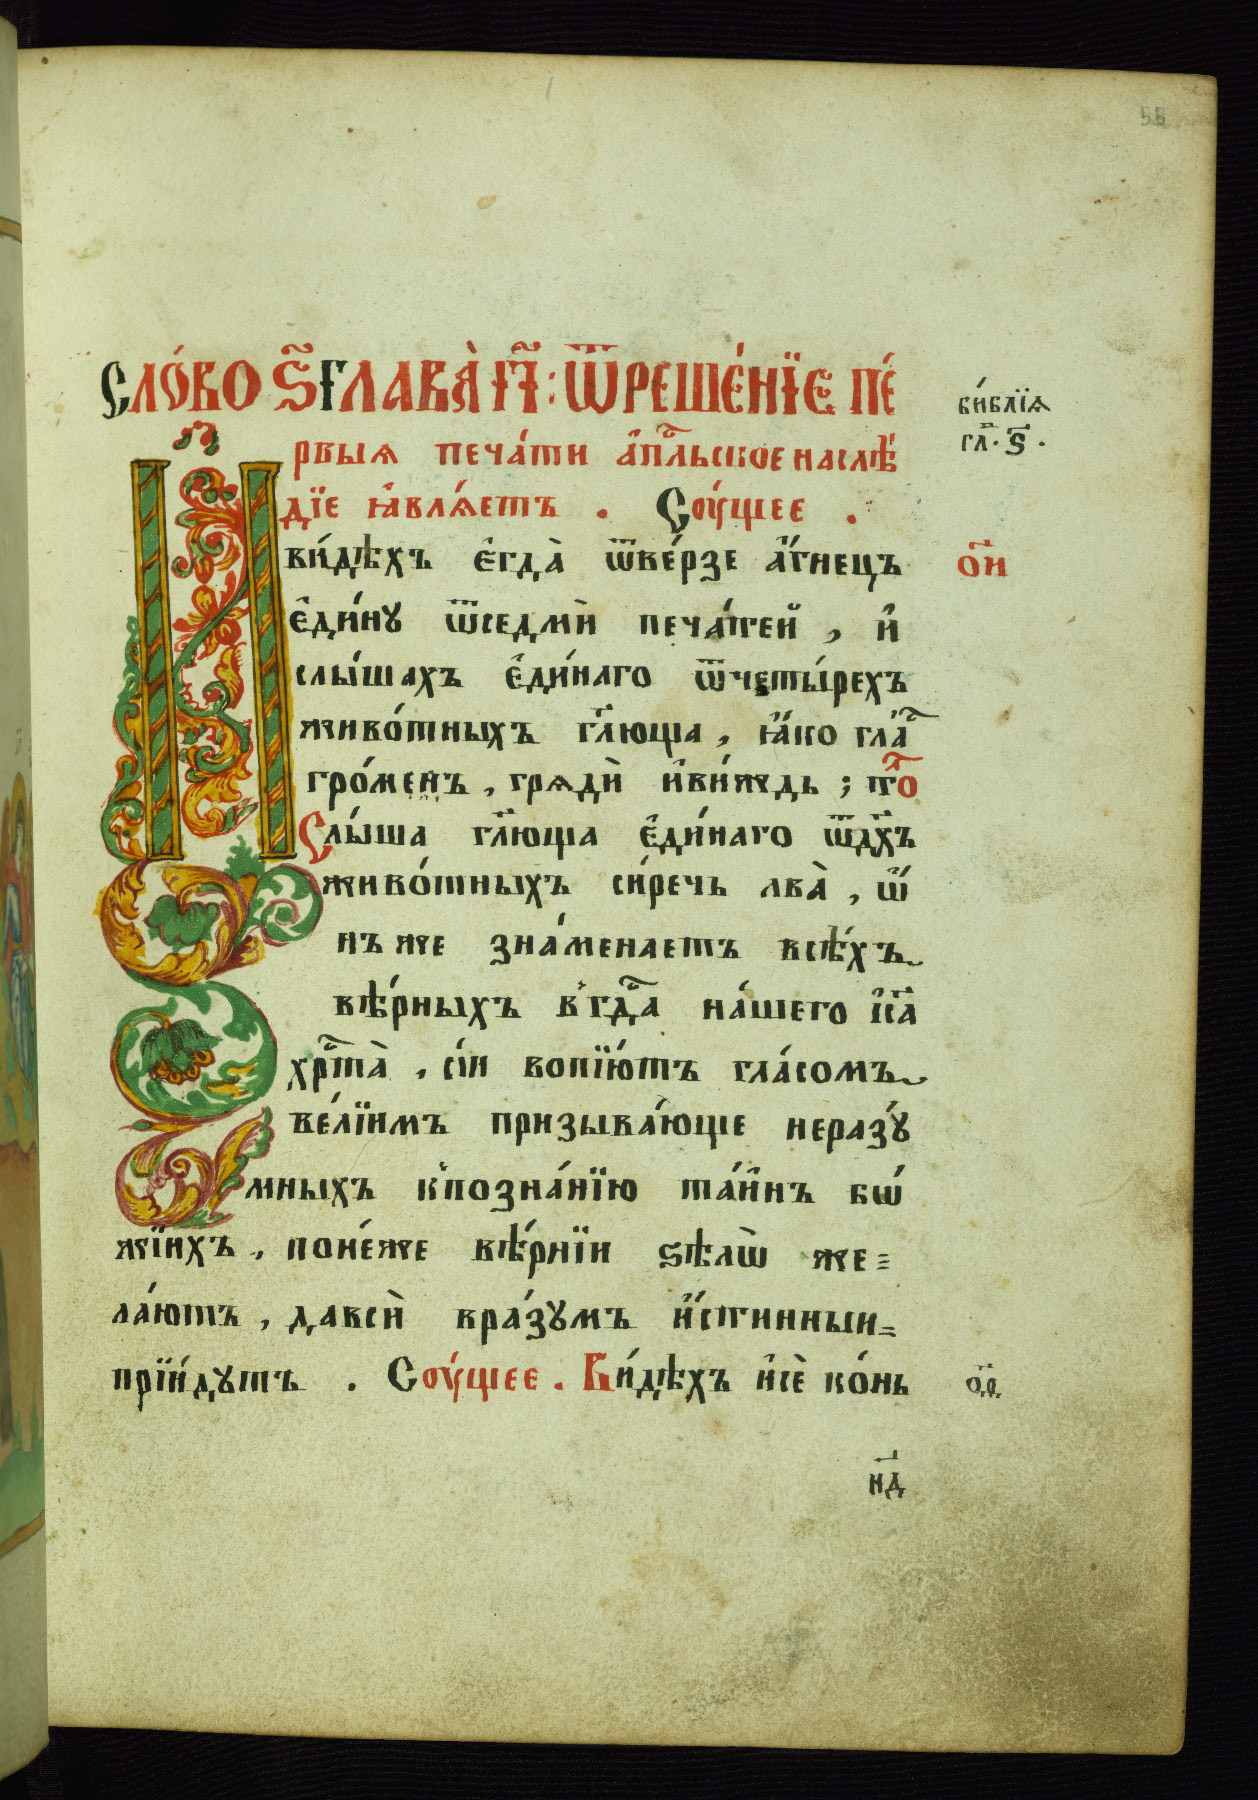 55
сло́во ѕ҃ глава̀ п҃і : ѿреше́нїе пе́
би́блїѧ
рвыѧ печа́ти а҆пⷭ҇льское наслѣ́
гл҃. ѕ҃ .
дїе ꙗ҆влѧ́етъ . Соу́щее .
И
ви́дѣхъ є҆гда̀ ѿве́рзе а҆́гнецъ
о҃и
є҆ди́нꙋ ѿседмѝ печа́тей , и҆
слы́шахъ є҆ди́наго ѿчеты́рехъ
живо́тныхъ гл҃юща , ꙗ҆́ко глаⷭ҇
гро́менъ , грѧдѝ и҆ви́ждь ; то
Слы́ша гл҃юща є҆ди́наго ѿдх҃ъ
живо́тныхъ си́речь лва̀ , ѡ҆́
нъже зна́менаетъ всѣ́хъ
вѣ́рныхъ в̾гдⷭ҇а на́шего і҆с҃а
хрⷭ҇та̀ , сі́и вопїю́тъ гла́сомъ
ве́лїимъ призыва́юще неразꙋ́
мныхъ к̾позна́нїю та́и҆нъ бѡ́
жїихъ , поне́же вѣ́рнїи ѕѣлѡ̀ же=
ла́ютъ , давсѝ вра́зꙋмъ и҆́стинный=
прїи́дꙋтъ . Соу́щее . Ви́дѣхъ и҆сѐ ко́нь
о҃д
н҃д